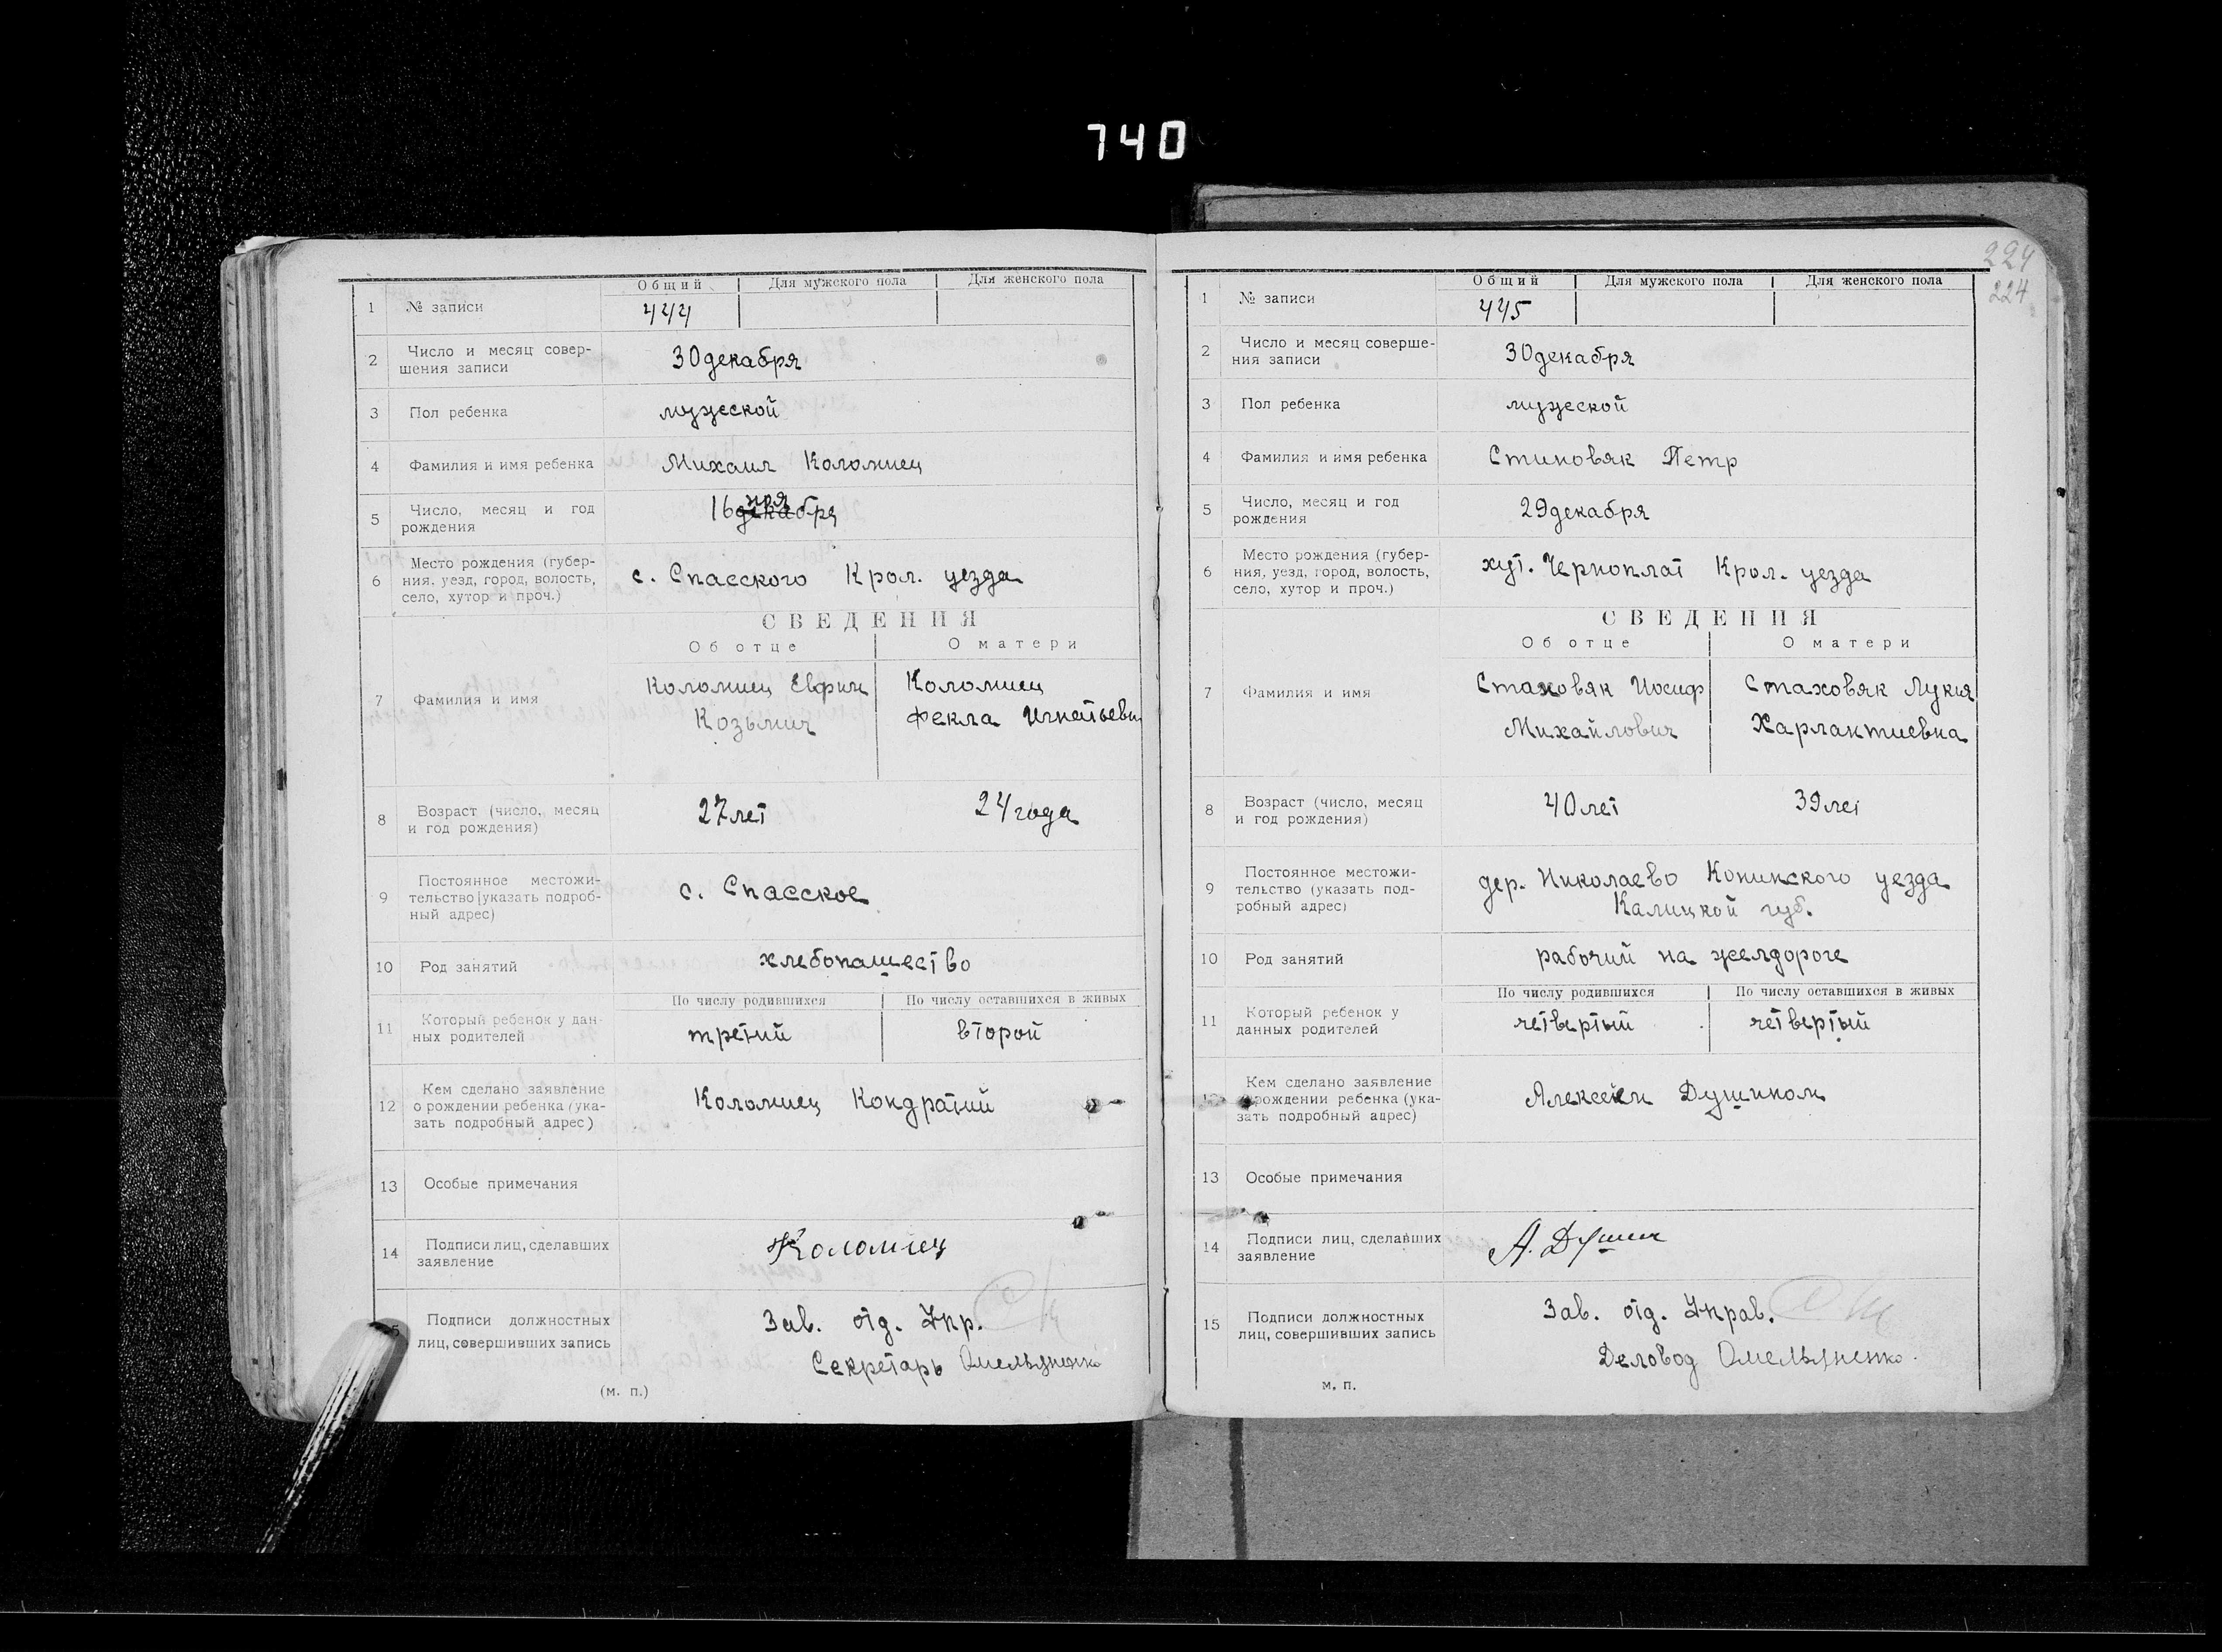 740
Общий Для мужского пола Для женского пола
1 № записи 444
2 Число и месяц совер-
шения записи 30 декабря
3 Пол ребенка мужеской
4 Фамилия и имя ребенка Михаил Коломиец
5 Число, месяц и год
рождения 16 ноября
6 Место рождения (губер-
ния, уезд, город, волость,
село, хутор и проч.) с. Спасского Крол. уезда
СВЕДЕНИЯ
Об отце О матери
7 Фамилия и имя
Коломиец Ефим Коломиец
Козьмич Фекла Игнатьевн
8 Возраст (число, месяц
и год рождения) 27 лет 24 года
9 Постоянное местожи-
тельство (указать подроб-
ный адрес) с. Спасское
10 Род занятий хлебопашество
По числу родившихся По числу оставшихся в живых
11 Который ребенок у дан-
ных родителей третий второй
12 Кем сделано заявление
о рождении ребенка (ука-
зать подробный адрес) Коломиец Кондратий
13 Особые примечания
14 Подписи лиц, сделавших
заявление Коломиец
5 Подписи должностных
лиц, совершивших запись
Зав. отд. Упр.
Секретарь Омельяненко
(м. п.)
224
224
Общий Для мужского пола Для женского пола
1 № записи 445
2 Число и месяц соверше-
ния записи 30 декабря
3 Пол ребенка мужеской
4 Фамилия и имя ребенка Стиковяк Петр
5 Число, месяц и год
рождения 29 декабря
6 Место рождения (губер-
ния, уезд, город, волость,
село, хутор и проч.) хут. Черноплат Крол. уезда
СВЕДЕНИЯ
Об отце О матери
7 Фамилия и имя
Стаховяк Иосиф Стаховяк Лукия
Михайлович Харлактиевна
8 Возраст (число, месяц
и год рождения) 40 лет 39 лет
9 Постоянное местожи-
тельство (указать под-
робный адрес)
дер. Николаево Конинского уезда
Калицкой губ.
10 Род занятий рабочий на желдороге
По числу родившихся По числу оставшихся в живых
11 Который ребенок у
данных родителей четвертый четвертый
Кем сделано заявление
рождении ребенка (ука-
зать подробный адрес) Алексеем Душином
13 Особые примечания
14 Подписи лиц, сделавших
заявление А. Душин
15 Подписи должностных
лиц, совершивших запись
Зав. отд. Управ.
Деловод Омельяненко.
м. п.